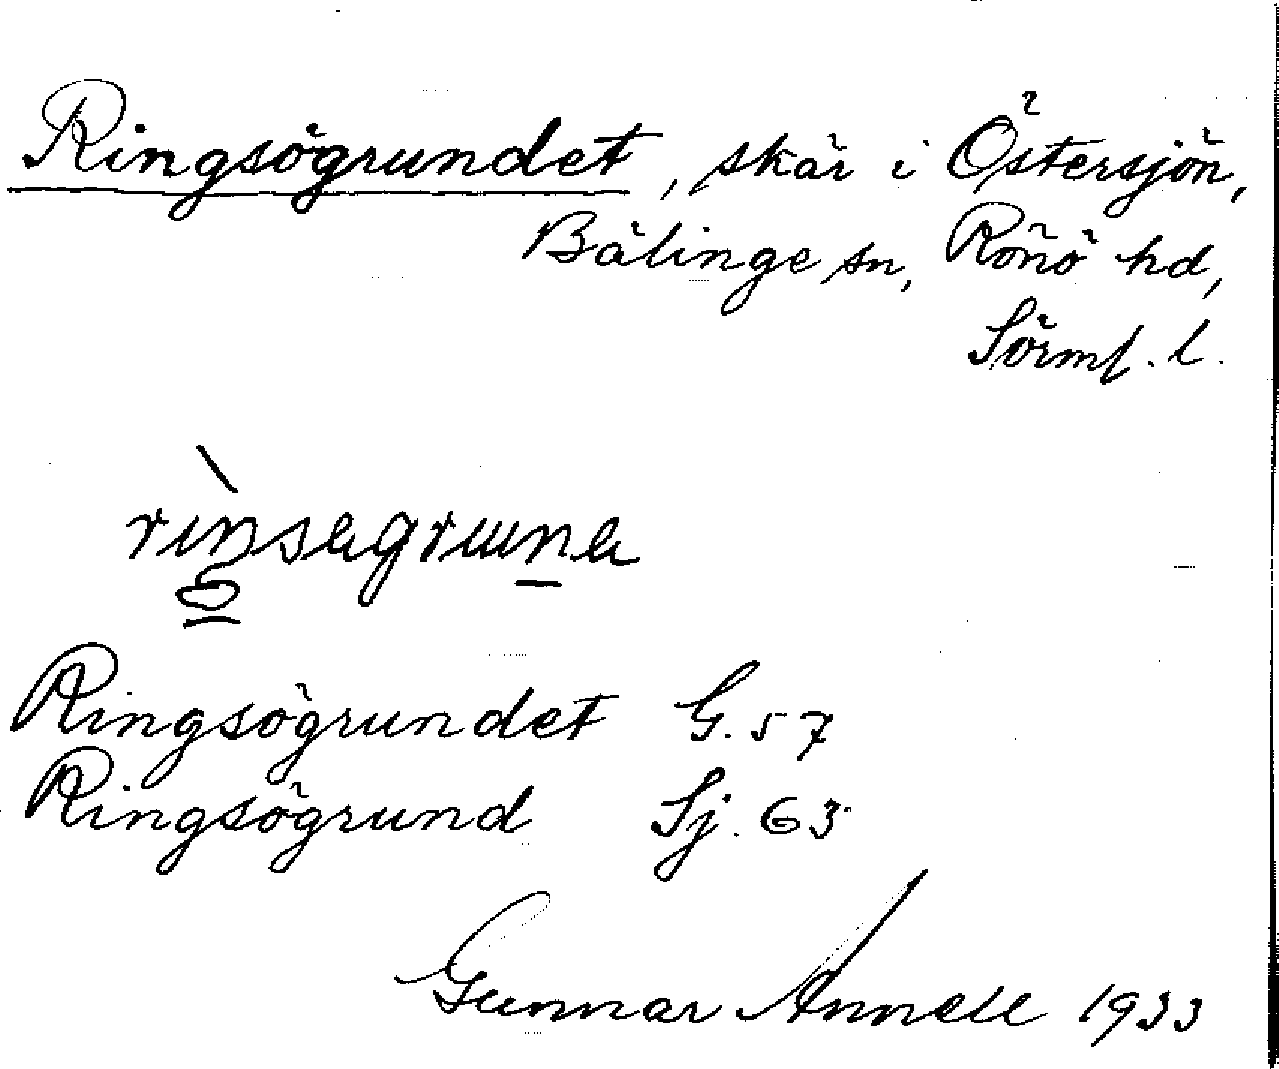 Ringsögrundet, skär i Östersjön,
Bälinge sn, Rönö hd,
Sörml. l.
Ringsögrundet G. 57
Ringsögrund Sj. 63
Gunnar Annell 1933